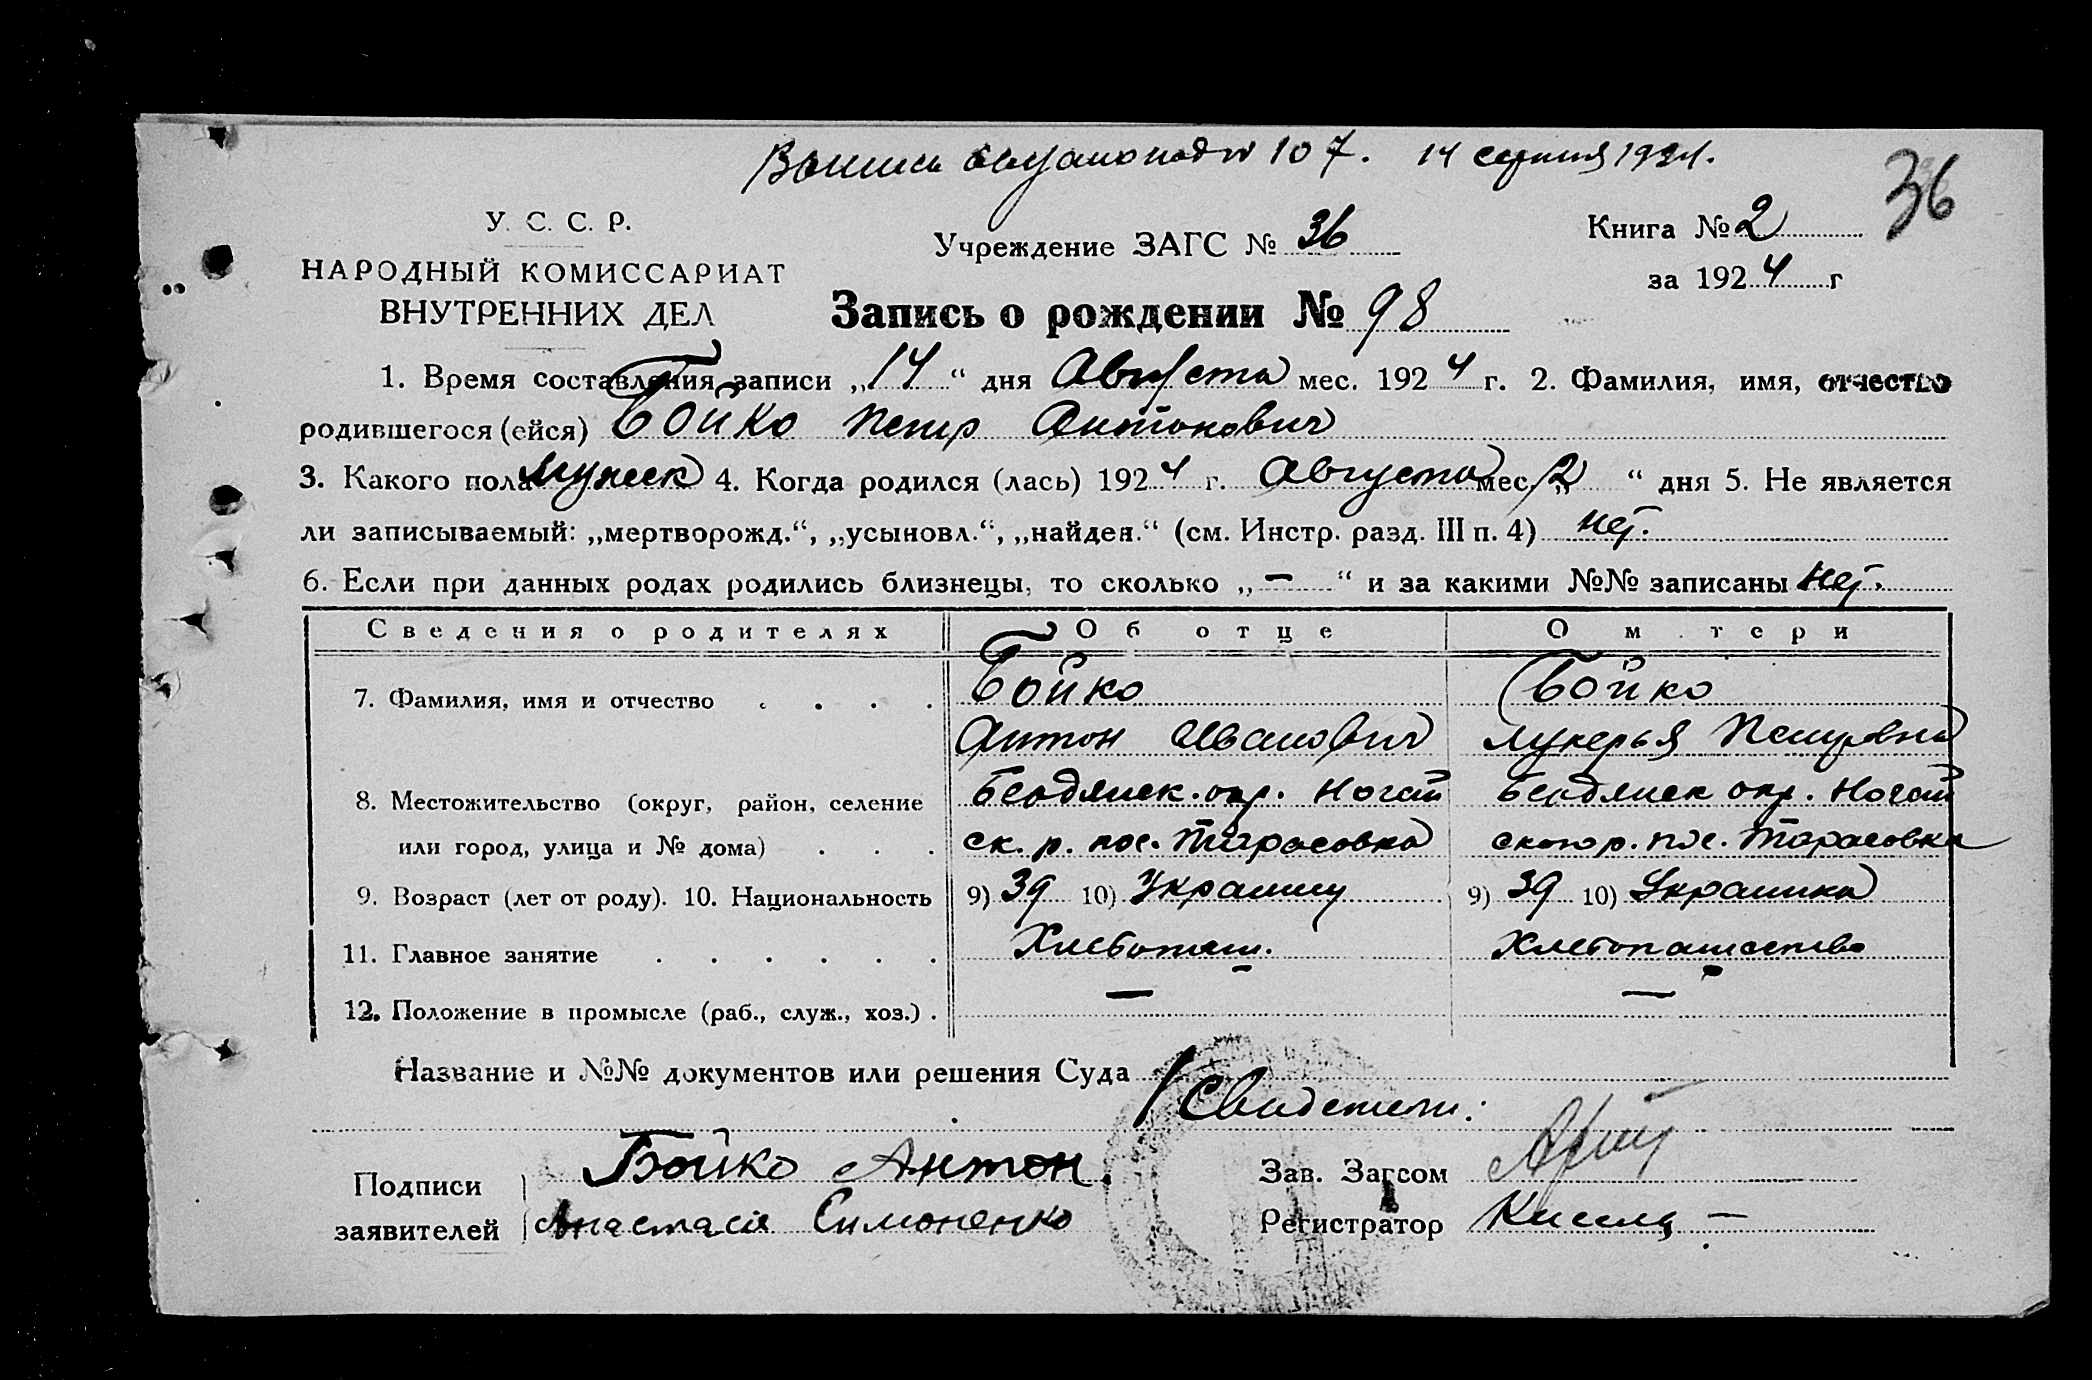 Выпись выдано под № 107. 14 серпня 1924.
36
У. С. С. Р.
НАРОДНЫЙ КОМИССАРИАТ
ВНУТРЕННИХ ДЕЛ
Учреждение ЗАГС № 36
Книга № 2
за 1924 г
Запись о рождении № 98
1. Время составления записи „14“ дня Августа мес. 1924 г. 2. Фамилия, имя, отчество
родившегося (ейся) Бойко Петр Антонович
3. Какого пола мужск 4. Когда родился (лась) 1924 г. Августа мес. „2“ дня 5. Не является
ли записываемый: „мертворожд.“, „усыновл.“, „найден.“ (см. Инстр. разд. III п. 4) нет.
6. Если при данных родах родились близнецы, то сколько „—“ и за какими №№ записаны нет.
Сведения о родителях Об отце О матери
7. Фамилия, имя и отчество . . . . Бойко Бойко
Антон Иванович Лукерья Петровна
8. Местожительство (округ, район, селение Бердянск. окр. Ногай Бердянск окр. Ногай
или город, улица и № дома) . . . ск. р. пос. Тарасовка ского р. пос. Тарасовка
9. Возраст (лет от роду). 10. Национальность 9) 39 10) Украинц 9) 39 10) Украинка
11. Главное занятие . . . . . . Хлебопаш. Хлебопашество
12. Положение в промысле (раб., служ., хоз.) . — —
Название и №№ документов или решения Суда
Свидетели:
Подписи
заявителей
Бойко Антон.
Анастасія Симоненко
Зав. Загсом
Регистратор